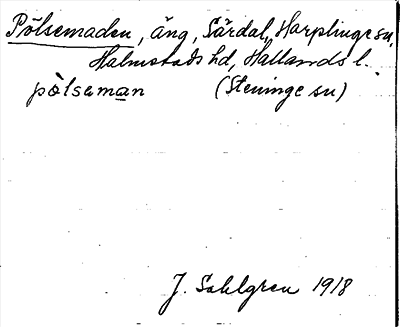 Pölsemaden, äng, Särdal, Harplinge sn,
Halmstads hd, Hallands l.
pölseman (Steninge sn)
J. Sahlgren 1918